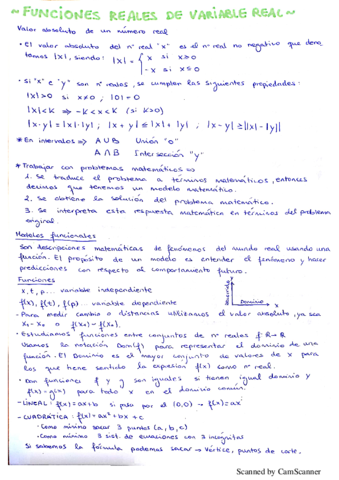 ~ FUNCIONES REALES DE VARIABLE REAL ~
Valor absoluto de un número real
• El valor absoluto del nº real "x" es el nº real no negativo que deno
tamos |x|, siendo: |x| = { x si x≥0
-x si x≤0
• Si "x" e "y" son nº reales, se cumplen las siguientes propiedades:
|x|>0 si x≠0 ; |0|=0
|x|<K ⇒ -K<x<K (si K>0)
|x·y| = |x|·|y| ; |x+y| ≤ |x|+|y| ; |x-y| ≥ ||x|-|y||
* En intervalos ⇒ A∪B Unión "o"
A∩B Intersección "y"
* Trabajar con problemas matemáticos ⇒
1. Se traduce el problema a términos matemáticos, entonces
decimos que tenemos un modelo matemático.
2. Se obtiene la solución del problema matemático.
3. Se interpreta esta respuesta matemática en términos del problema
original.
Modelos funcionales
Son descripciones matemáticas de fenómenos del mundo real usando una
función. El propósito de un modelo es entender el fenómeno y hacer
predicciones con respecto al comportamiento futuro.
Funciones
x, t, p... variable independiente
f(x), f(t), f(p)... variable dependiente
Recorrido
Dominio
- Para medir cambio o distancias utilizamos el valor absoluto, ya sea
x₁-x₂ o f(x₂)-f(x₁).
- Estudiamos funciones entre conjuntos de nº reales f: R→R
Usamos la notación Dom(f) para representar el dominio de una
función. El Dominio es el mayor conjunto de valores de x para
los que tiene sentido la expresión f(x) como nº real.
- Dos funciones f y g son iguales si tienen igual dominio y
f(x)=g(x) para todo x en el dominio común
- LINEAL: f(x)=ax+b si pasa por el (0,0) → f(x)=ax
- CUADRÁTICA: f(x)=ax²+bx+c
· Como mínimo sacar 3 puntos (a, b, c)
· Como mínimo 3 sist. de ecuaciones con 3 incógnitas
Si sabemos la fórmula podemos sacar → Vértice, puntos de corte.
Scanned by CamScanner